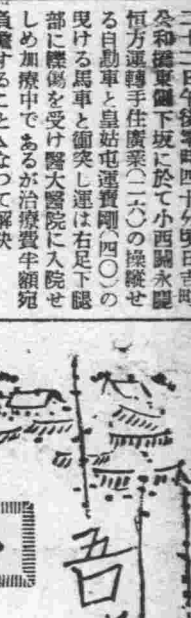 公和橋東側下坂に於て小西關永關
恒方運轉手住廣業(二六)の操縱せ
る自動車と皇姑屯運寶剛(四〇)の
曳ける馬車と衝突し運は右足下腿
部に轢傷を受け醫大醫院に入院せ
しめ加療中であるが治療費半額宛
負擔することゝなつて解決
吾